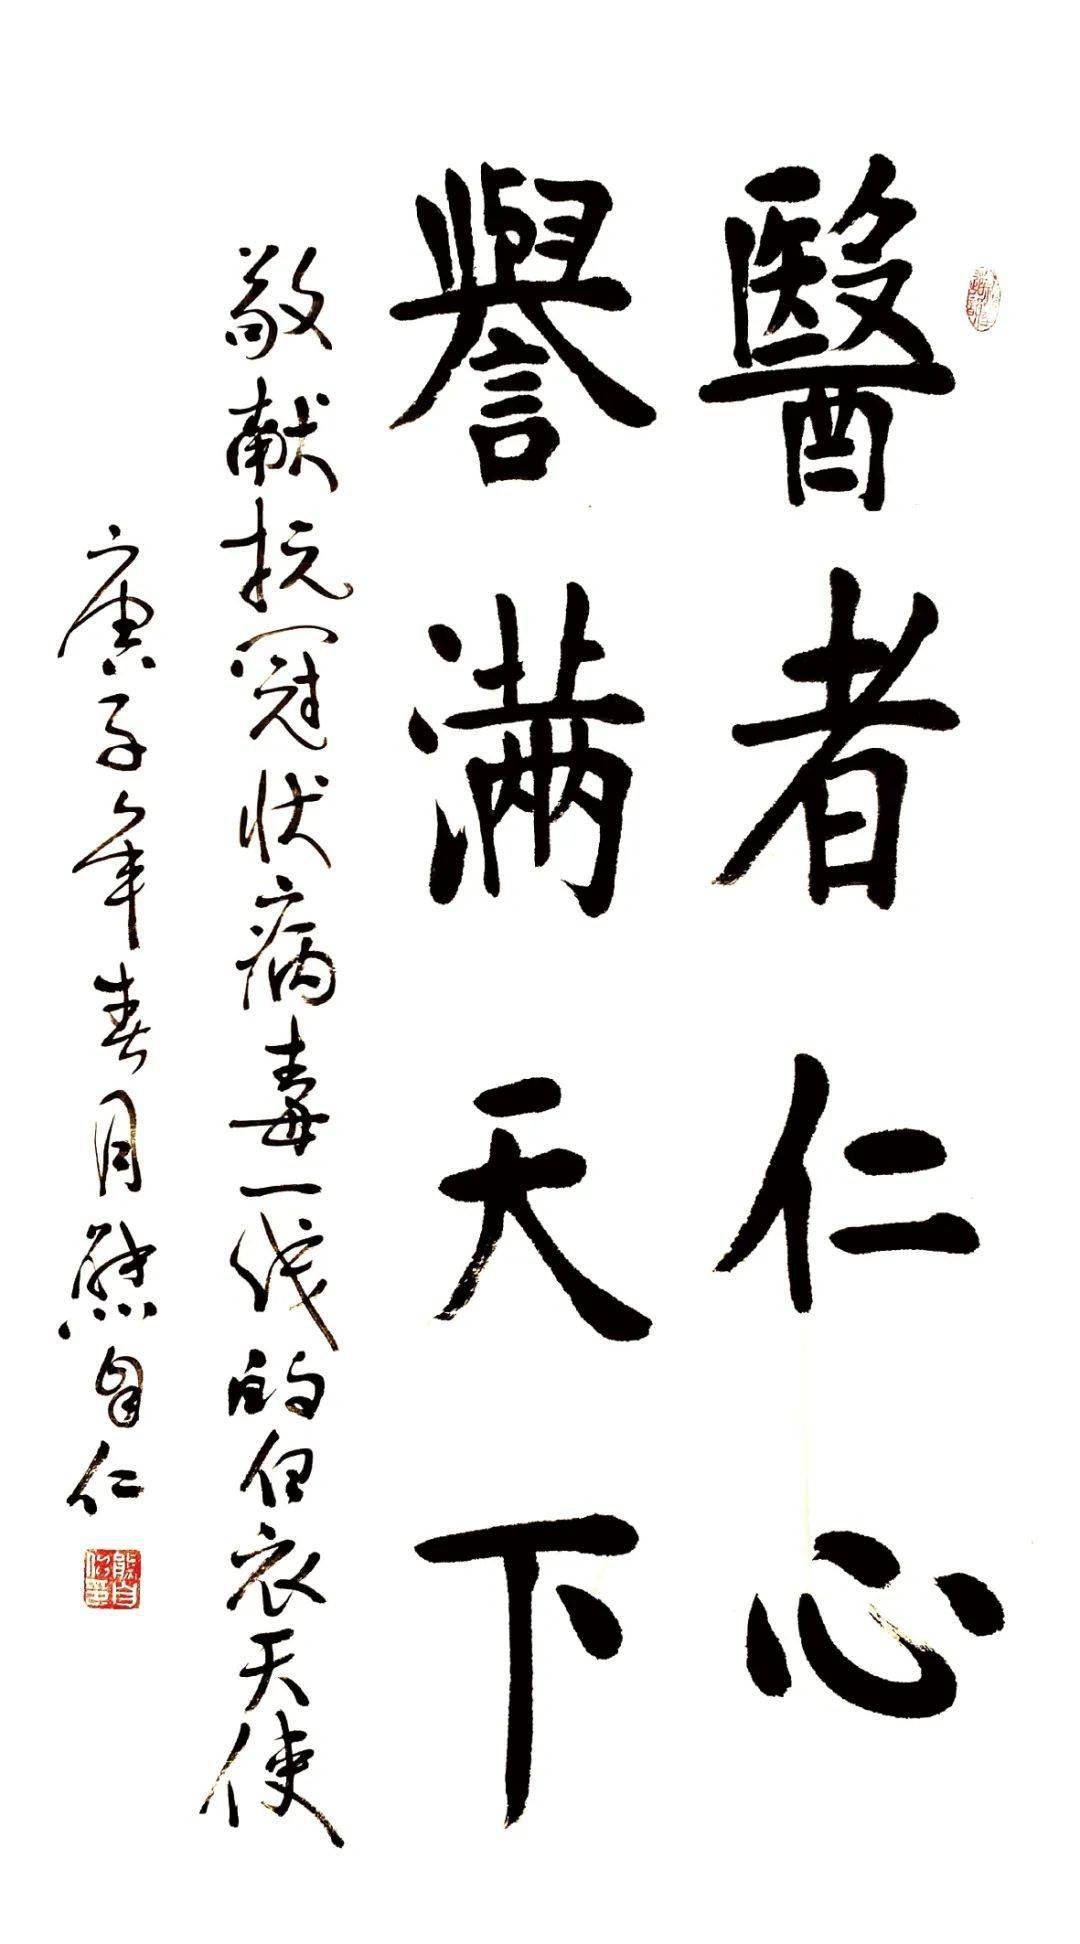 醫者仁心
譽满天下
敬献抗冠状病毒一代的白衣天使
庚子年春月熊自仁
熊自仁印